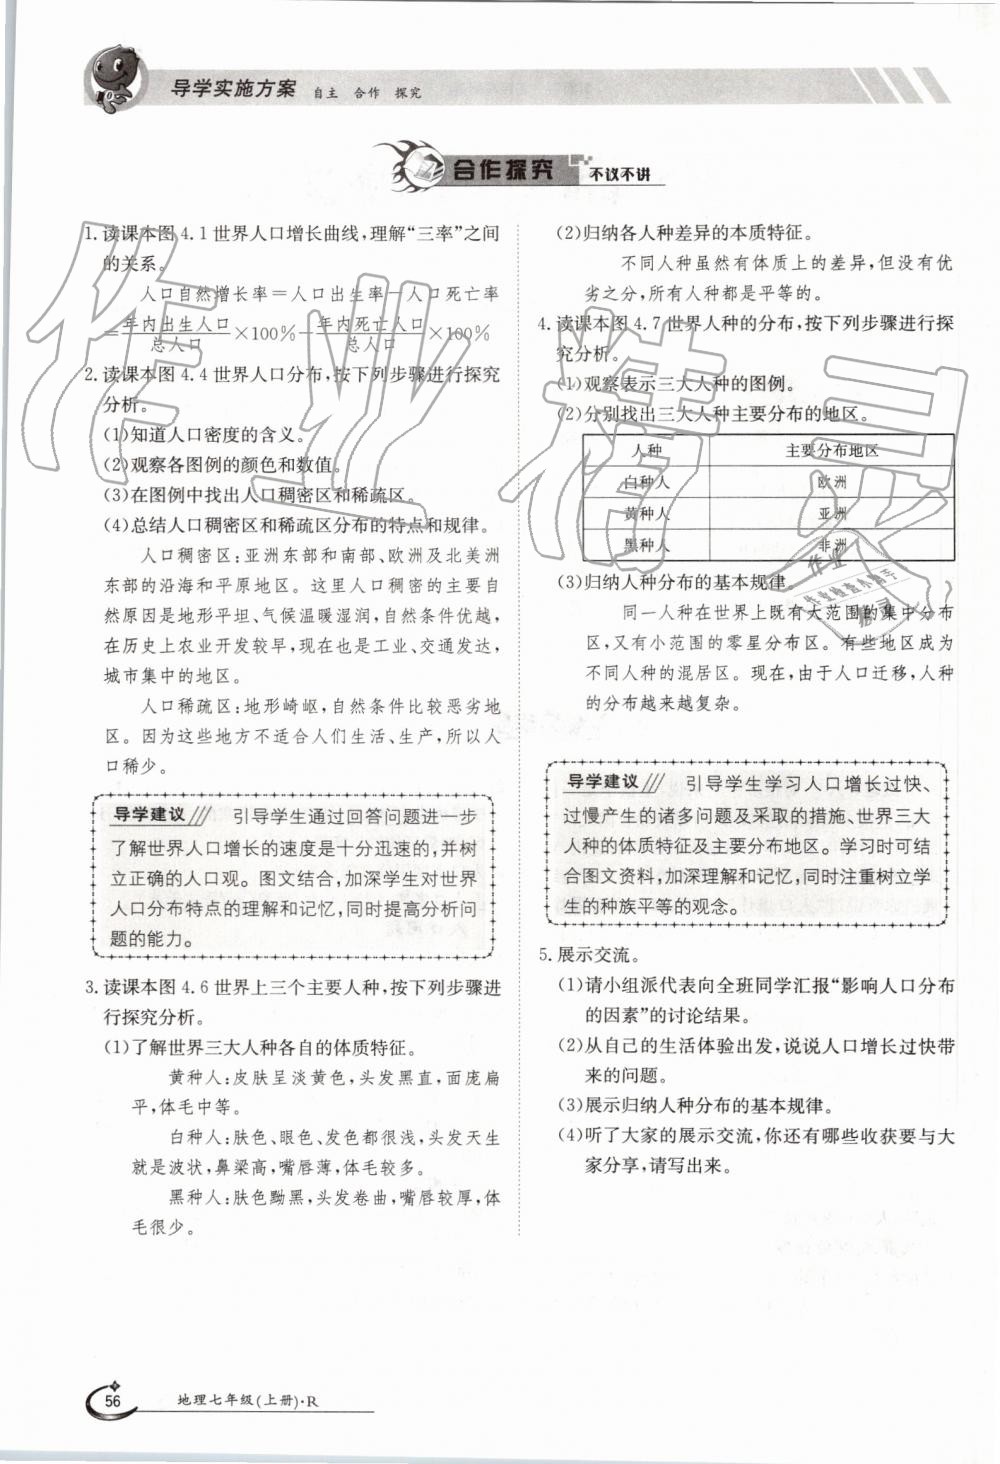 导学实施方案 自主 合作 探究
合作探究 不议不讲
1. 读课本图4.1世界人口增长曲线,理解“三率”之间
的关系。
人口自然增长率=人口出生率-人口死亡率
=年内出生人口/总人口×100%-年内死亡人口/总人口×100%
2. 读课本图4.4世界人口分布,按下列步骤进行探究
分析。
(1)知道人口密度的含义。
(2)观察各图例的颜色和数值。
(3)在图例中找出人口稠密区和稀疏区。
(4)总结人口稠密区和稀疏区分布的特点和规律。
人口稠密区:亚洲东部和南部、欧洲及北美洲
东部的沿海和平原地区。这里人口稠密的主要自
然原因是地形平坦、气候温暖湿润,自然条件优越,
在历史上农业开发较早,现在也是工业、交通发达,
城市集中的地区。
人口稀疏区:地形崎岖,自然条件比较恶劣地
区。因为这些地方不适合人们生活、生产,所以人
口稀少。
导学建议 引导学生通过回答问题进一步
了解世界人口增长的速度是十分迅速的,并树
立正确的人口观。图文结合,加深学生对世界
人口分布特点的理解和记忆,同时提高分析问
题的能力。
3. 读课本图4.6世界上三个主要人种,按下列步骤进
行探究分析。
(1)了解世界三大人种各自的体质特征。
黄种人:皮肤呈淡黄色,头发黑直,面庞扁
平,体毛中等。
白种人:肤色、眼色、发色都很浅,头发天生
就是波状,鼻梁高,嘴唇薄,体毛较多。
黑种人:肤色黝黑,头发卷曲,嘴唇较厚,体
毛很少。
(2)归纳各人种差异的本质特征。
不同人种虽然有体质上的差异,但没有优
劣之分,所有人种都是平等的。
4. 读课本图4.7世界人种的分布,按下列步骤进行探
究分析。
(1)观察表示三大人种的图例。
(2)分别找出三大人种主要分布的地区。
人种 主要分布地区
白种人 欧洲
黄种人 亚洲
黑种人 非洲
(3)归纳人种分布的基本规律。
同一人种在世界上既有大范围的集中分布
区,又有小范围的零星分布区。有些地区成为
不同人种的混居区。现在,由于人口迁移,人种
的分布越来越复杂。
导学建议 引导学生学习人口增长过快、
过慢产生的诸多问题及采取的措施、世界三大
人种的体质特征及主要分布地区。学习时可结
合图文资料,加深理解和记忆,同时注重树立学
生的种族平等的观念。
5. 展示交流。
(1)请小组派代表向全班同学汇报“影响人口分布
的因素”的讨论结果。
(2)从自己的生活体验出发,说说人口增长过快带
来的问题。
(3)展示归纳人种分布的基本规律。
(4)听了大家的展示交流,你还有哪些收获要与大
家分享,请写出来。
作业精灵
56 地理七年级(上册)·R